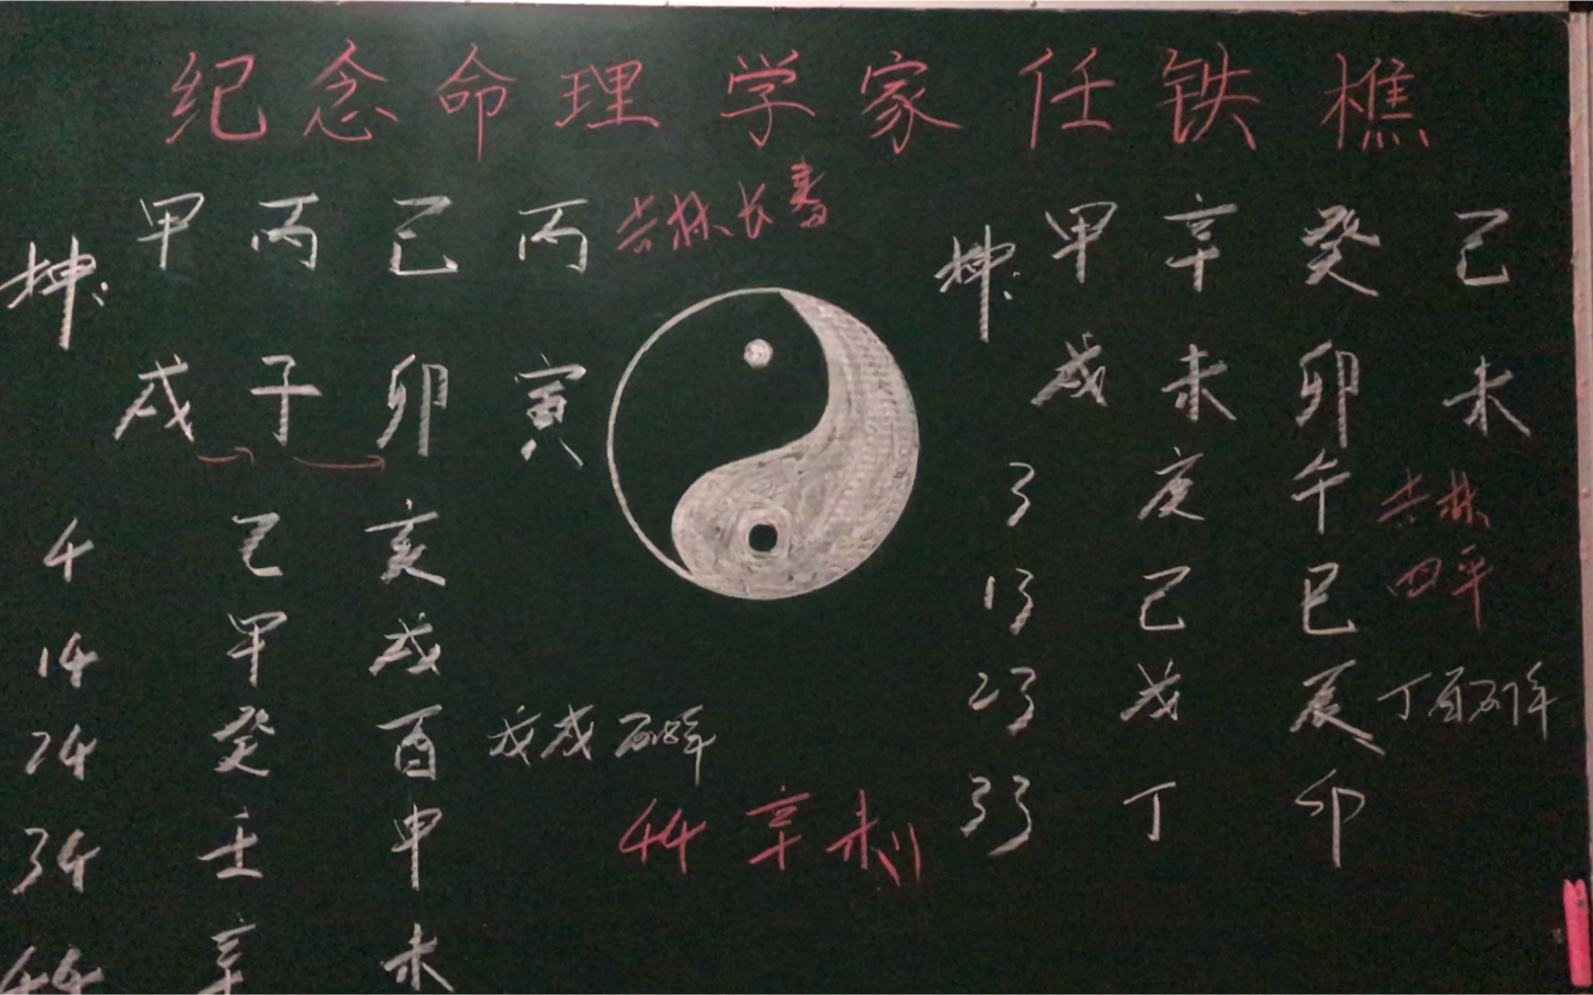 纪念命理学家任铁樵
坤: 甲 丙 己 丙 吉林长春
戌 子 卯 寅
4 乙 亥
14 甲 戌
24 癸 酉 戊戌 离婚
34 壬 申
44 辛 未
44 辛未
坤: 甲 辛 癸 己
戌 未 卯 未
3 庚 午 吉林
13 己 巳 四平
23 戊 辰 丁酉
33 丁 卯